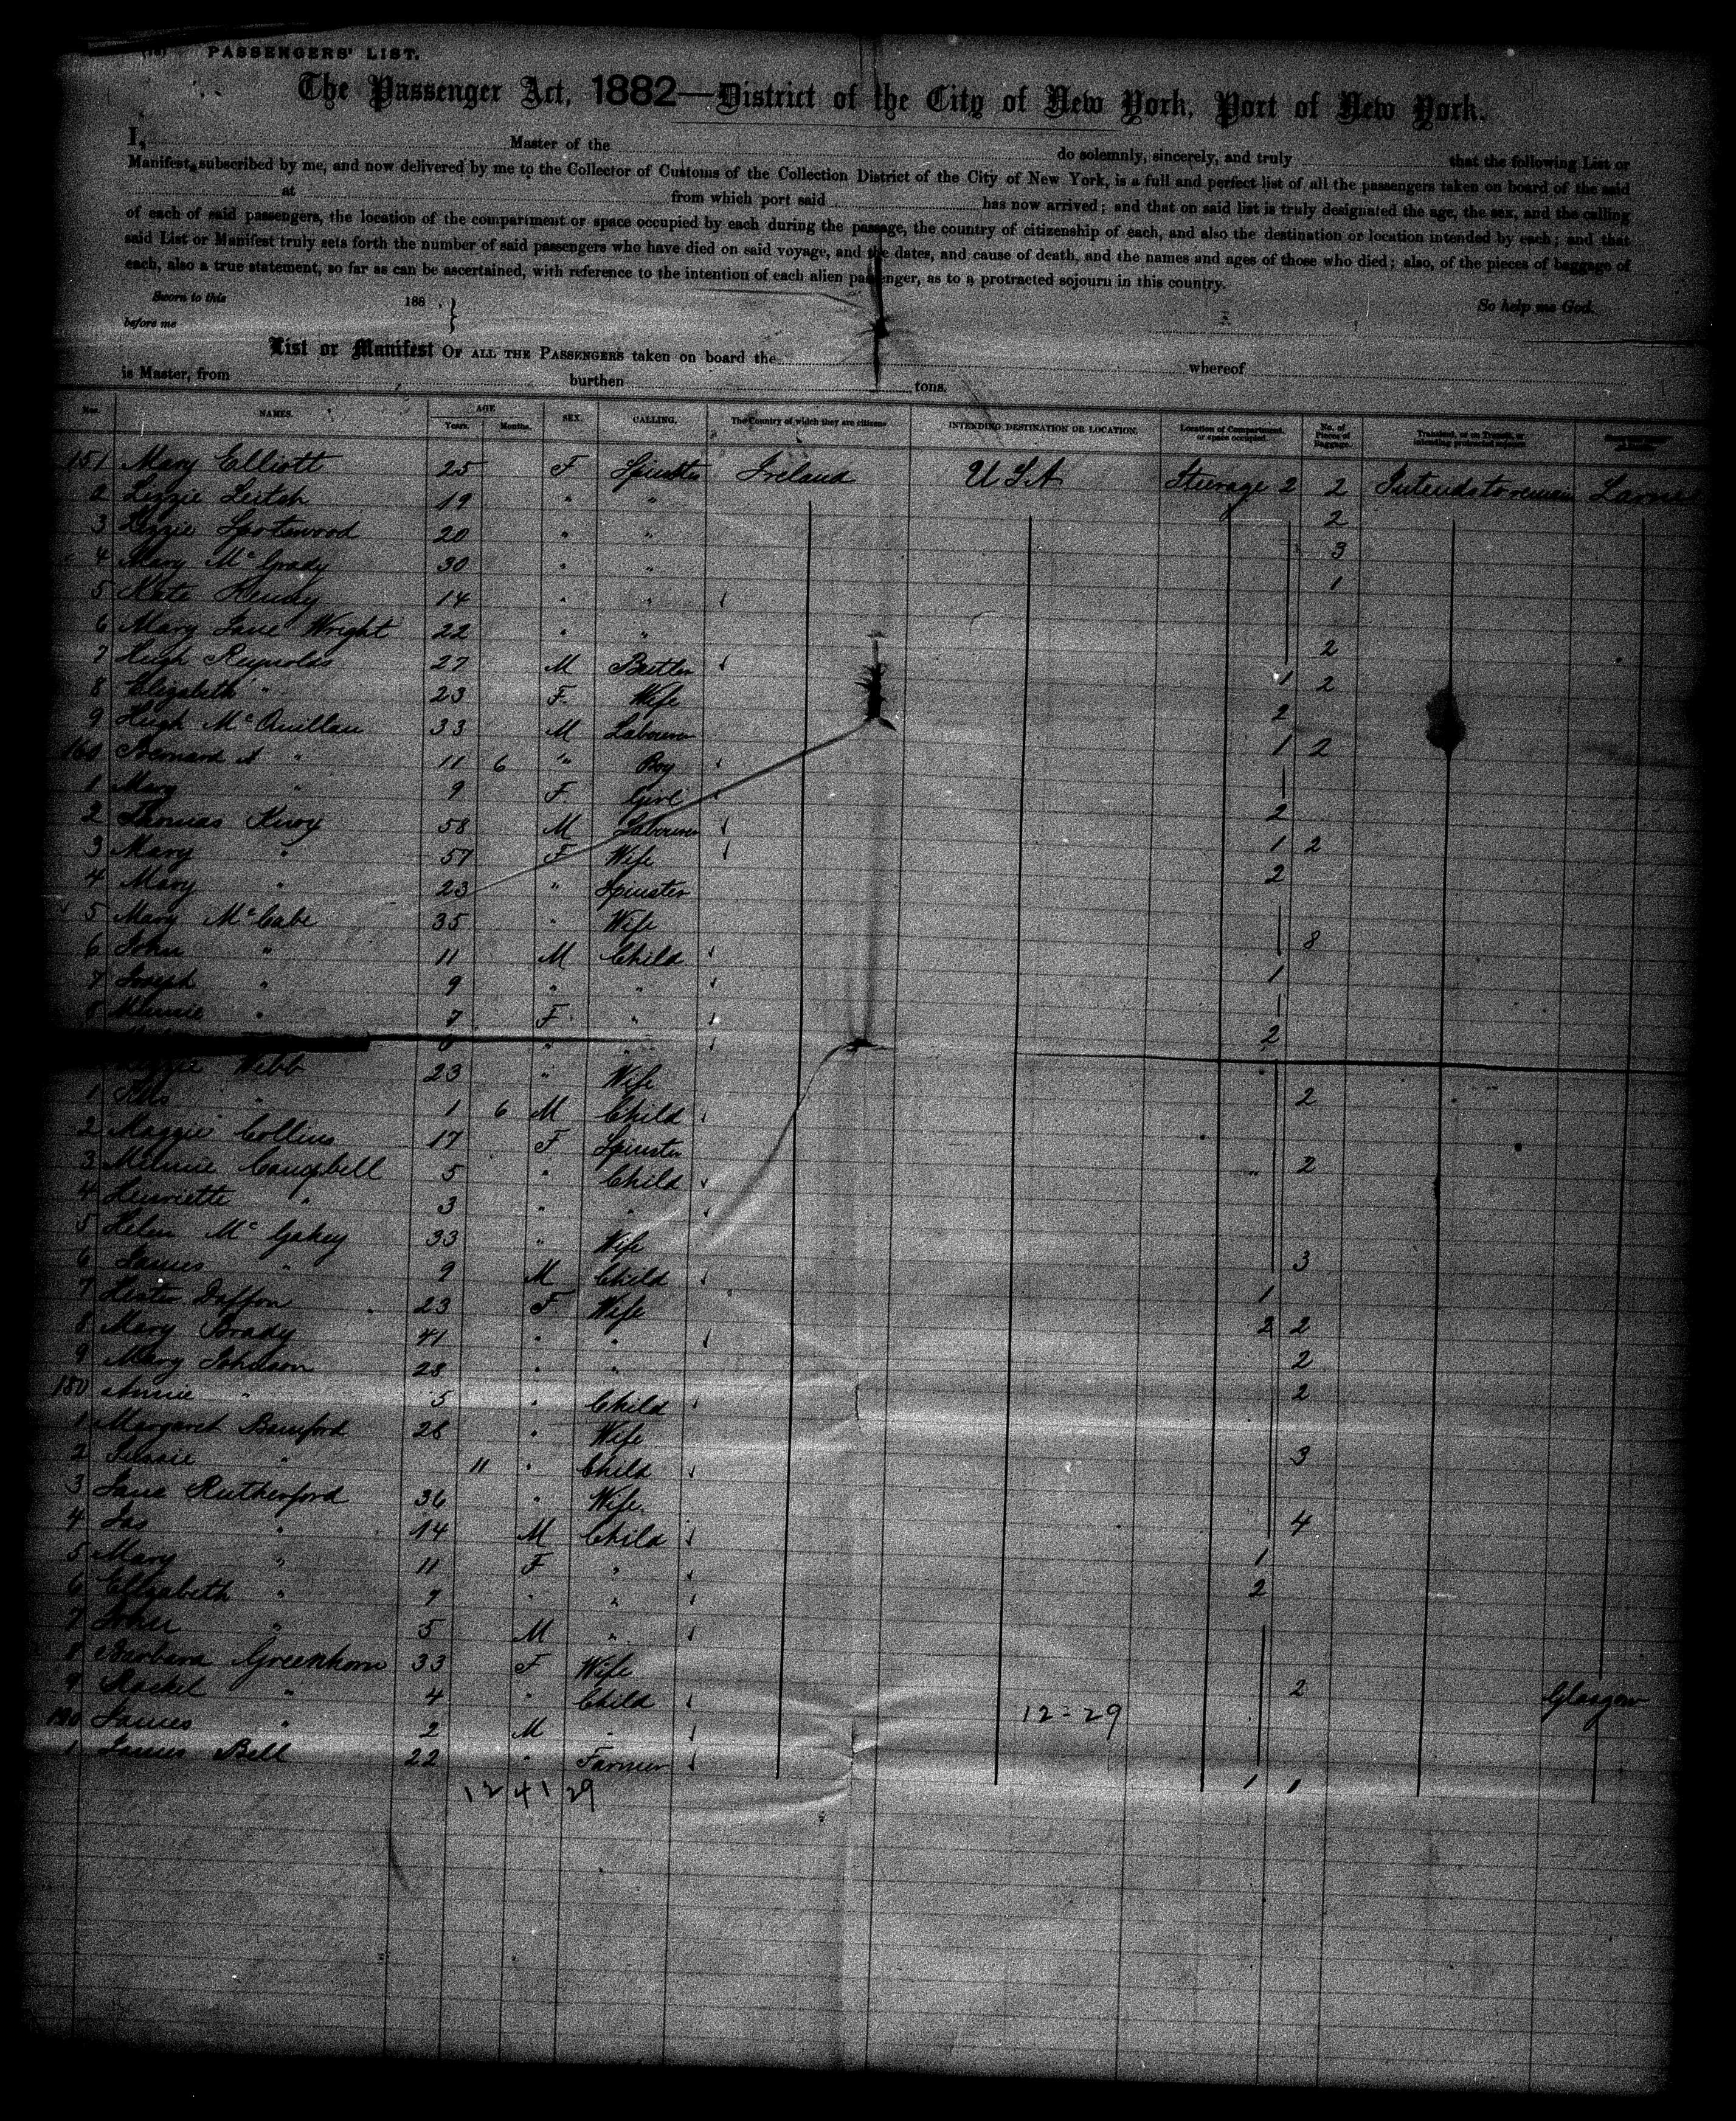 PASSENGERS' LIST.
The Passenger Act, 1882—District of the City of New York, Port of New York.
I, Master of the do solemnly, sincerely, and truly that the following List or
Manifest, subscribed by me, and now delivered by me to the Collector of Customs of the Collection District of the City of New York, is a full and perfect list of all the passengers taken on board of the said
at from which port said has now arrived; and that on said list is truly designated the age, the sex, and the calling
of each of said passengers, the location of the compartment or space occupied by each during the passage, the country of citizenship of each, and also the destination or location intended by each; and that
said List or Manifest truly sets forth the number of said passengers who have died on said voyage, and the dates, and cause of death, and the names and ages of those who died; also, of the pieces of baggage of
each, also a true statement, so far as can be ascertained, with reference to the intention of each alien passenger, as to a protracted sojourn in this country.
Sworn to this 188 . So help me God.
before me
List or Manifest OF ALL THE PASSENGERS taken on board the whereof
is Master, from burthen tons.
Nos. NAMES. AGE Years. Months. SEX. CALLING. The Country of which they are citizens INTENDING DESTINATION OR LOCATION. Location of Compartment, or space occupied. No. of Pieces of Baggage.
151 Mary Elliott 25 F Spinster Ireland U S A Steerage 2 2 Intends to remain Larne
2 Lizzie Leitch 19 " " 2
3 Lizzie Spotswood 20 " " 3
4 Mary McGrady 30 " " 1
5 Kate 14 " "
6 Mary Jane Wright 22 " " 2
7 Hugh Reynolds 27 M Butler 1 2
8 Elizabeth " 23 F Wife 2
9 Hugh McQuillan 33 M Labourer 1 2
160 Bernard A " 11 6 " Boy
1 Mary " 9 F Girl 2
2 Thomas 58 M Labourer 1 2
3 Mary " 57 F Wife 2
4 Mary " 23 " Spinster
5 Mary McCabe 35 " Wife 8
6 John " 11 M Child 1
7 Joseph " 9 " "
8 Minnie " 7 F " 2
Webb 23 " Wife 2
1 " 1 6 M Child
2 Maggie Collins 17 F Spinster 2
3 Minnie Campbell 5 " Child
4 Henriette " 3 " "
5 Helen McGahey 33 " Wife 3
6 James " 9 M Child 1
7 Hester Daffon 23 F Wife 2 2
8 Mary Brady 41 " " 2
9 Mary Johnson 28 " " 2
180 Annie " 5 " Child
1 Margaret Bamford 28 " Wife 3
2 Jessie " 11 " Child
3 Jane Rutherford 36 " Wife 4
4 Jas " 14 M Child 1
5 Mary " 11 F " 2
6 Elizabeth " 7 " "
7 John " 5 M "
8 Barbara Greenhorn 33 F Wife 2 Glasgow
9 Rachel " 4 " Child 12=29
190 James " 2 M "
1 James Bell 22 " Farmer 1 1
12 + 1 29